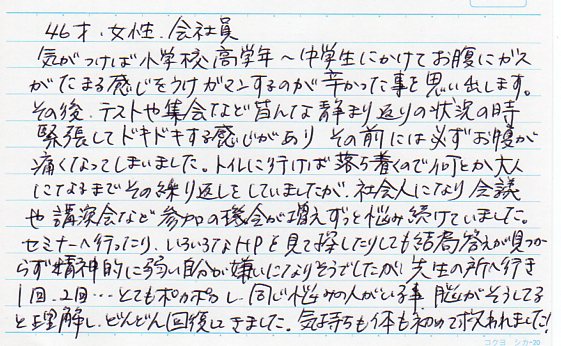 46才.女性.会社員
気がつけば小学校高学年〜中学生にかけてお腹にガス
がたまる感じをうけガマンするのが辛かった事を思い出します。
その後、テストや集会など皆んな静まり返りの状況の時
緊張してドキドキする感じがあり その前には必ずお腹が
痛くなってしまいました。トイレに行けば落ち着くので何とか大人
になるまでその繰り返しをしていましたが、社会人になり会議
や講演会など参加の機会が増えずっと悩み続けていました。
セミナーへ行ったり、いろいろなHPを見て探したりしても結局答えが見つか
らず精神的に弱い自分が嫌いになりそうでしたが、先生の所へ行き
1回、2回…とてもポカポカし、同じ悩みの人がいる事 脳がそうしてる
と理解し、どんどん回復してきました。気持ちも体も初めて救われました!
コクヨ シカ-20